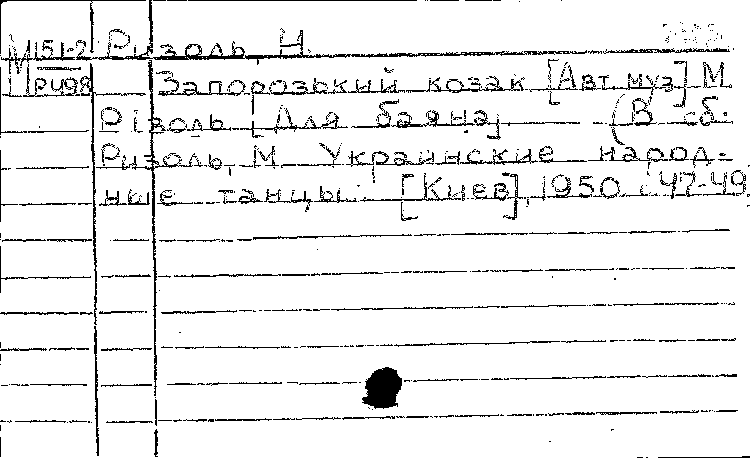 М151-2 Ризоль, Н.
Р498 Запорозький козак [Авт. муз] М
Різоль [Для баяна] (В сб.
Ризоль, М. Украинские народ-
ные танцы. [Киев], 1950 с 47-49